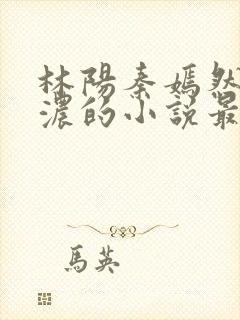 林陽秦嫣然
濃的小說最
馬英